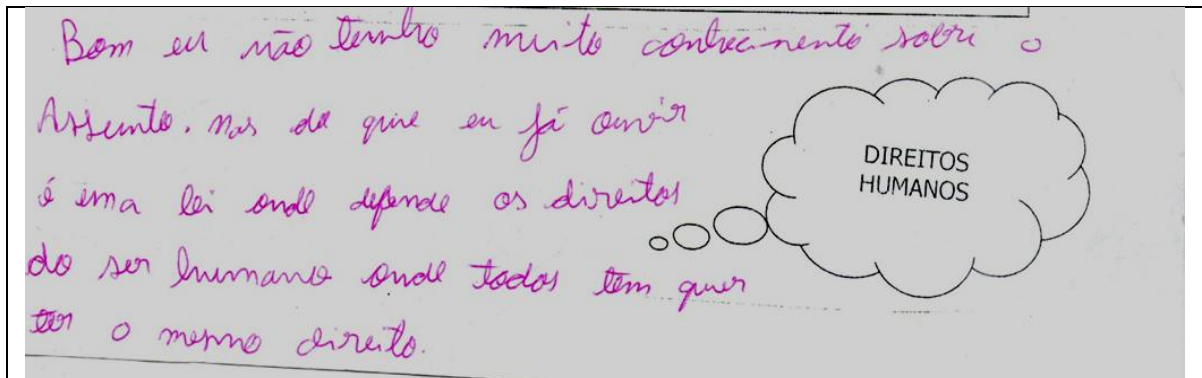 Bom eu não tenho muito conhecimento sobre o
Assunto. mas do que eu já ouvir
é uma lei onde defende os direitos
do ser humano onde todos tem quer
ter o mesmo direito.
DIREITOS
HUMANOS